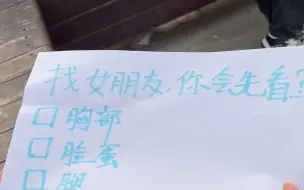 找女朋友,你会先看?
□ 胸部
□ 脸蛋
□ 腿